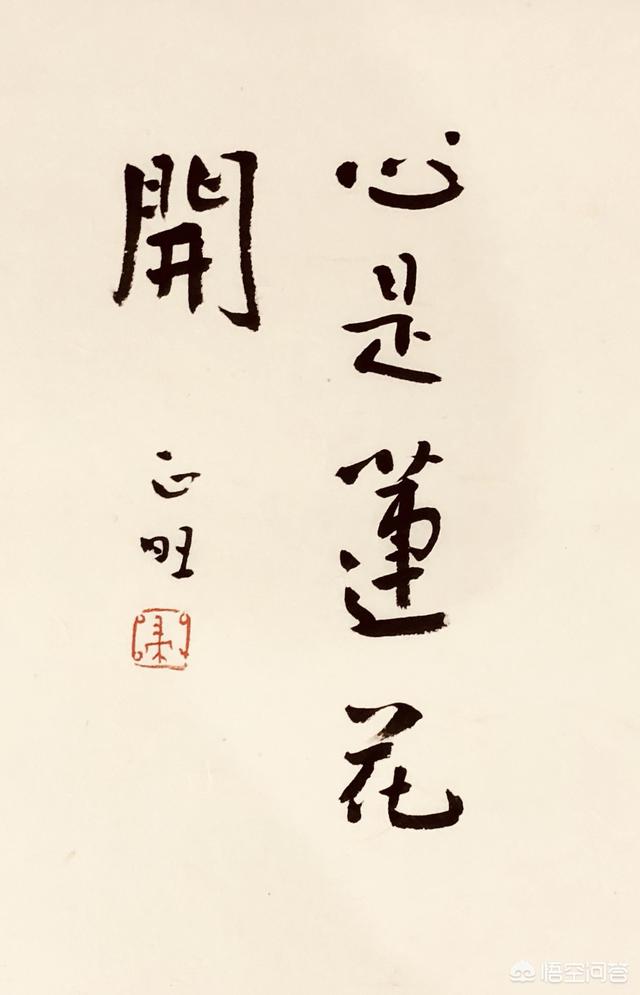 心是蓮花
開
正旺
悟空问答